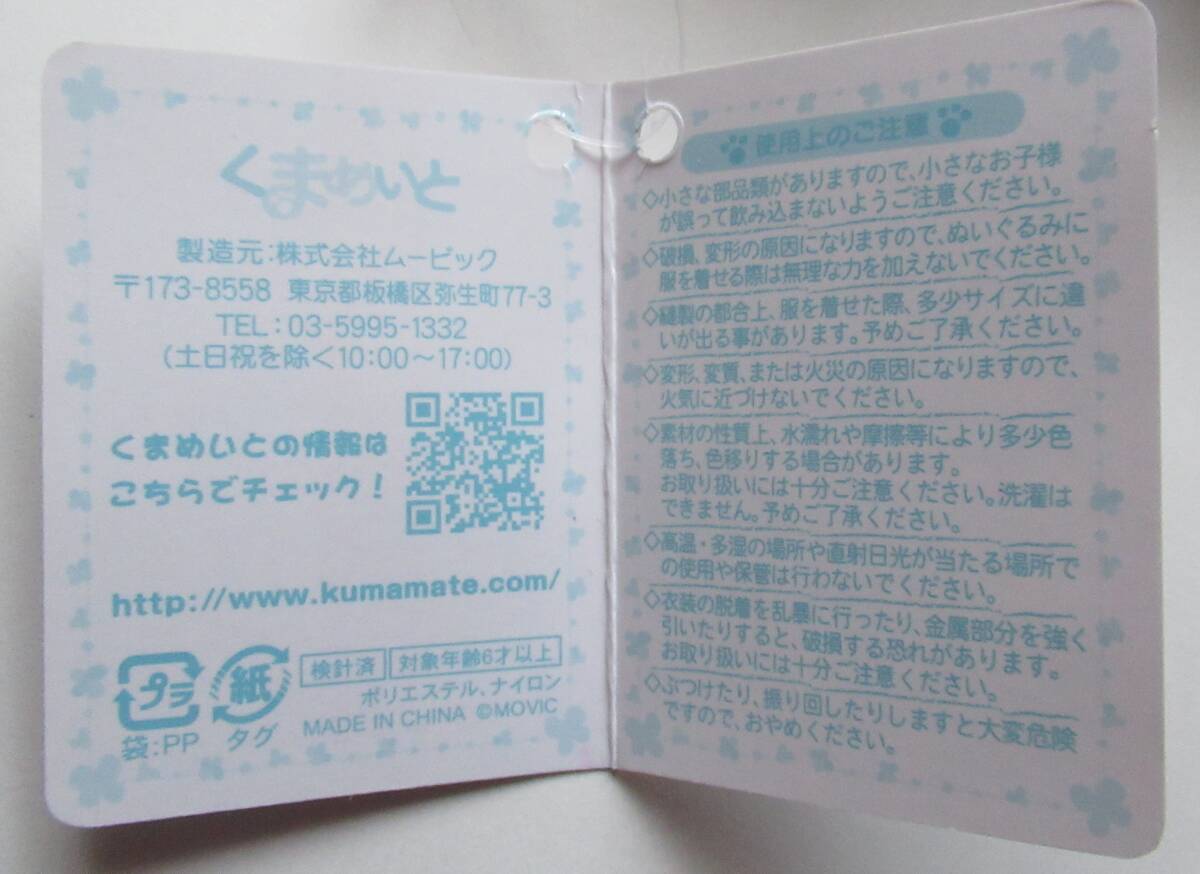 くまめいと
製造元:株式会社ムービック
〒173-8558 東京都板橋区弥生町77-3
TEL:03-5995-1332
(土日祝を除く10:00～17:00)
くまめいとの情報は
こちらでチェック!
http://www.kumamate.com/
プラ
紙
検針済
対象年齢6才以上
ポリエステル、ナイロン
MADE IN CHINA ©MOVIC
袋:PP タグ
使用上のご注意
◇小さな部品類がありますので、小さなお子様
が誤って飲み込まないようご注意ください。
◇破損、変形の原因になりますので、ぬいぐるみに
服を着せる際は無理な力を加えないでください。
◇縫製の都合上、服を着せた際、多少サイズに違
いが出る事があります。予めご了承ください。
◇変形、変質、または火災の原因になりますので、
火気に近づけないでください。
◇素材の性質上、水濡れや摩擦等により多少色
落ち、色移りする場合があります。
お取り扱いには十分ご注意ください。洗濯は
できません。予めご了承ください。
◇高温・多湿の場所や直射日光が当たる場所で
の使用や保管は行わないでください。
◇衣装の脱着を乱暴に行ったり、金属部分を強く
引いたりすると、破損する恐れがあります。
お取り扱いには十分ご注意ください。
◇ぶつけたり、振り回したりしますと大変危険
ですので、おやめください。